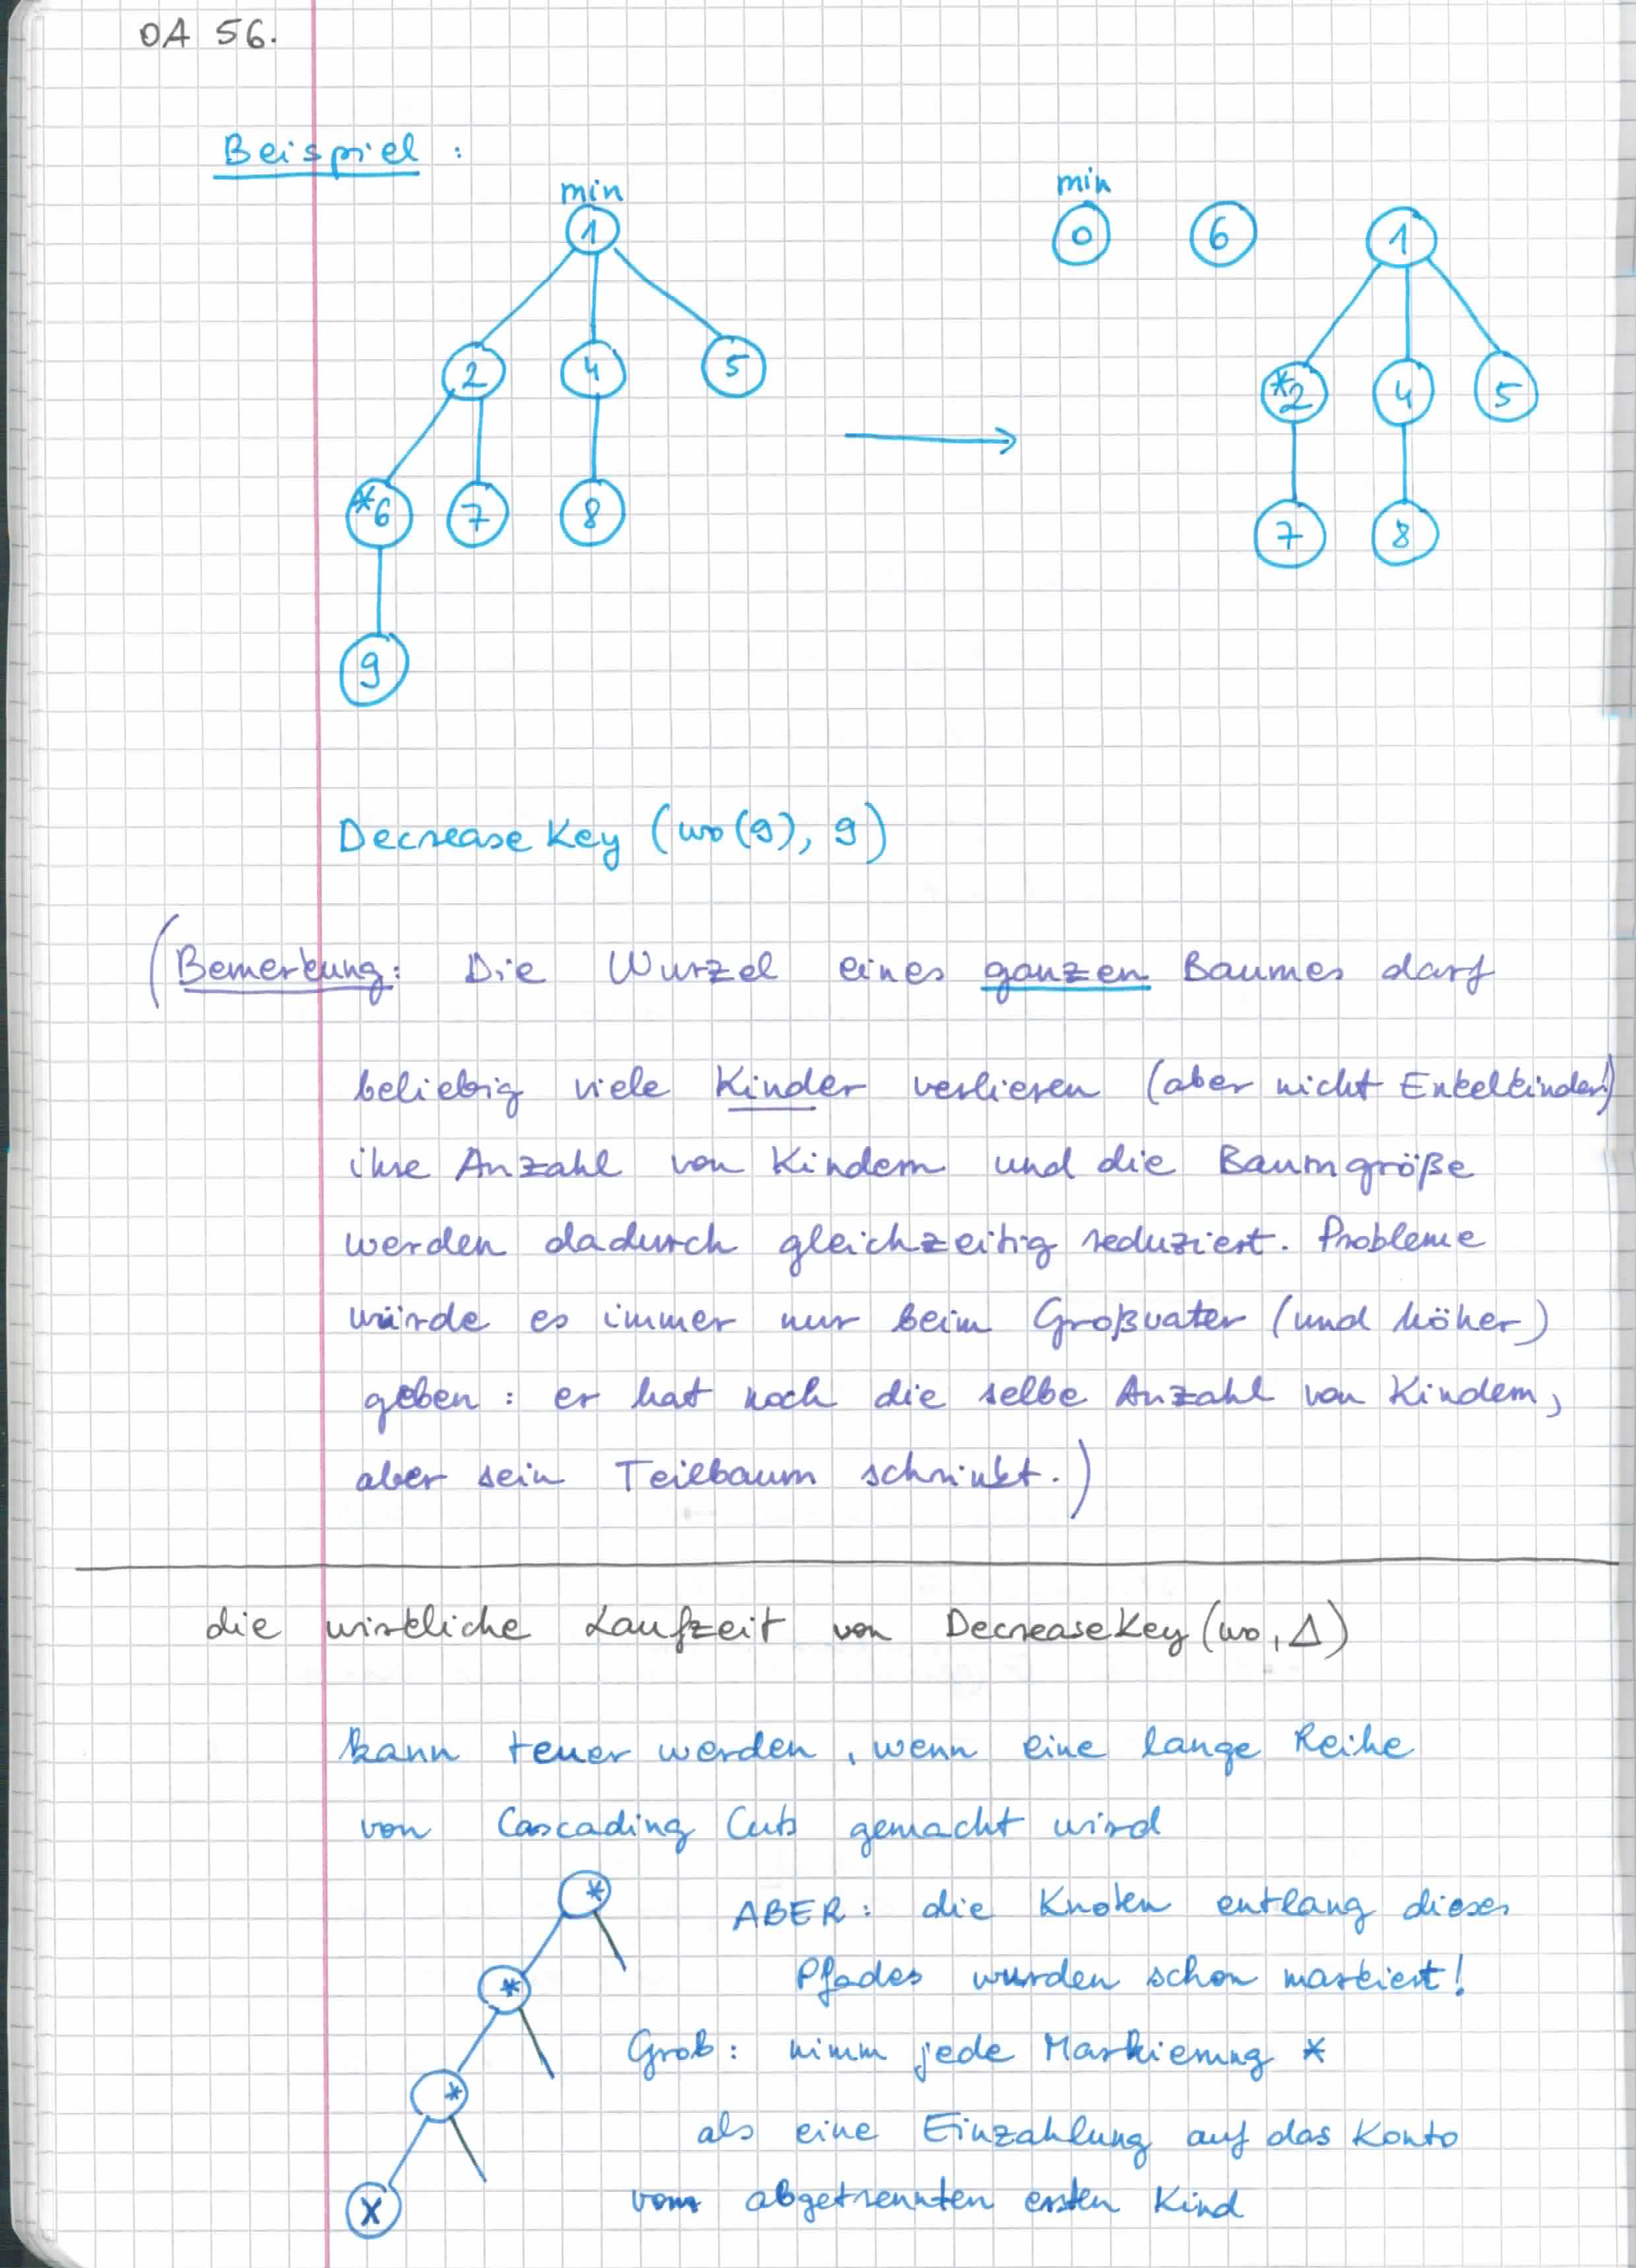 OA 56.
Beispiel :
min
min
1
0
6
1
2
4
5
*2
4
5
*6
7
8
7
8
9
Decrease Key (wo(9), 9)
(Bemerkung: Die Wurzel eines ganzen Baumes darf
beliebig viele Kinder verlieren (aber nicht Enkelkinder!)
ihre Anzahl von Kindern und die Baumgröße
werden dadurch gleichzeitig reduziert. Probleme
würde es immer nur beim Großvater (und höher)
geben : er hat noch die selbe Anzahl von Kindern,
aber sein Teilbaum schrinkt.)
die wirkliche Laufzeit von DecreaseKey (wo, Δ)
kann teuer werden, wenn eine lange Reihe
von Cascading Cuts gemacht wird
*
ABER: die Knoten entlang dieses
*
Pfades wurden schon markiert!
Grob: nimm jede Markierung *
*
als eine Einzahlung auf das Konto
X
vom abgetrennten ersten Kind